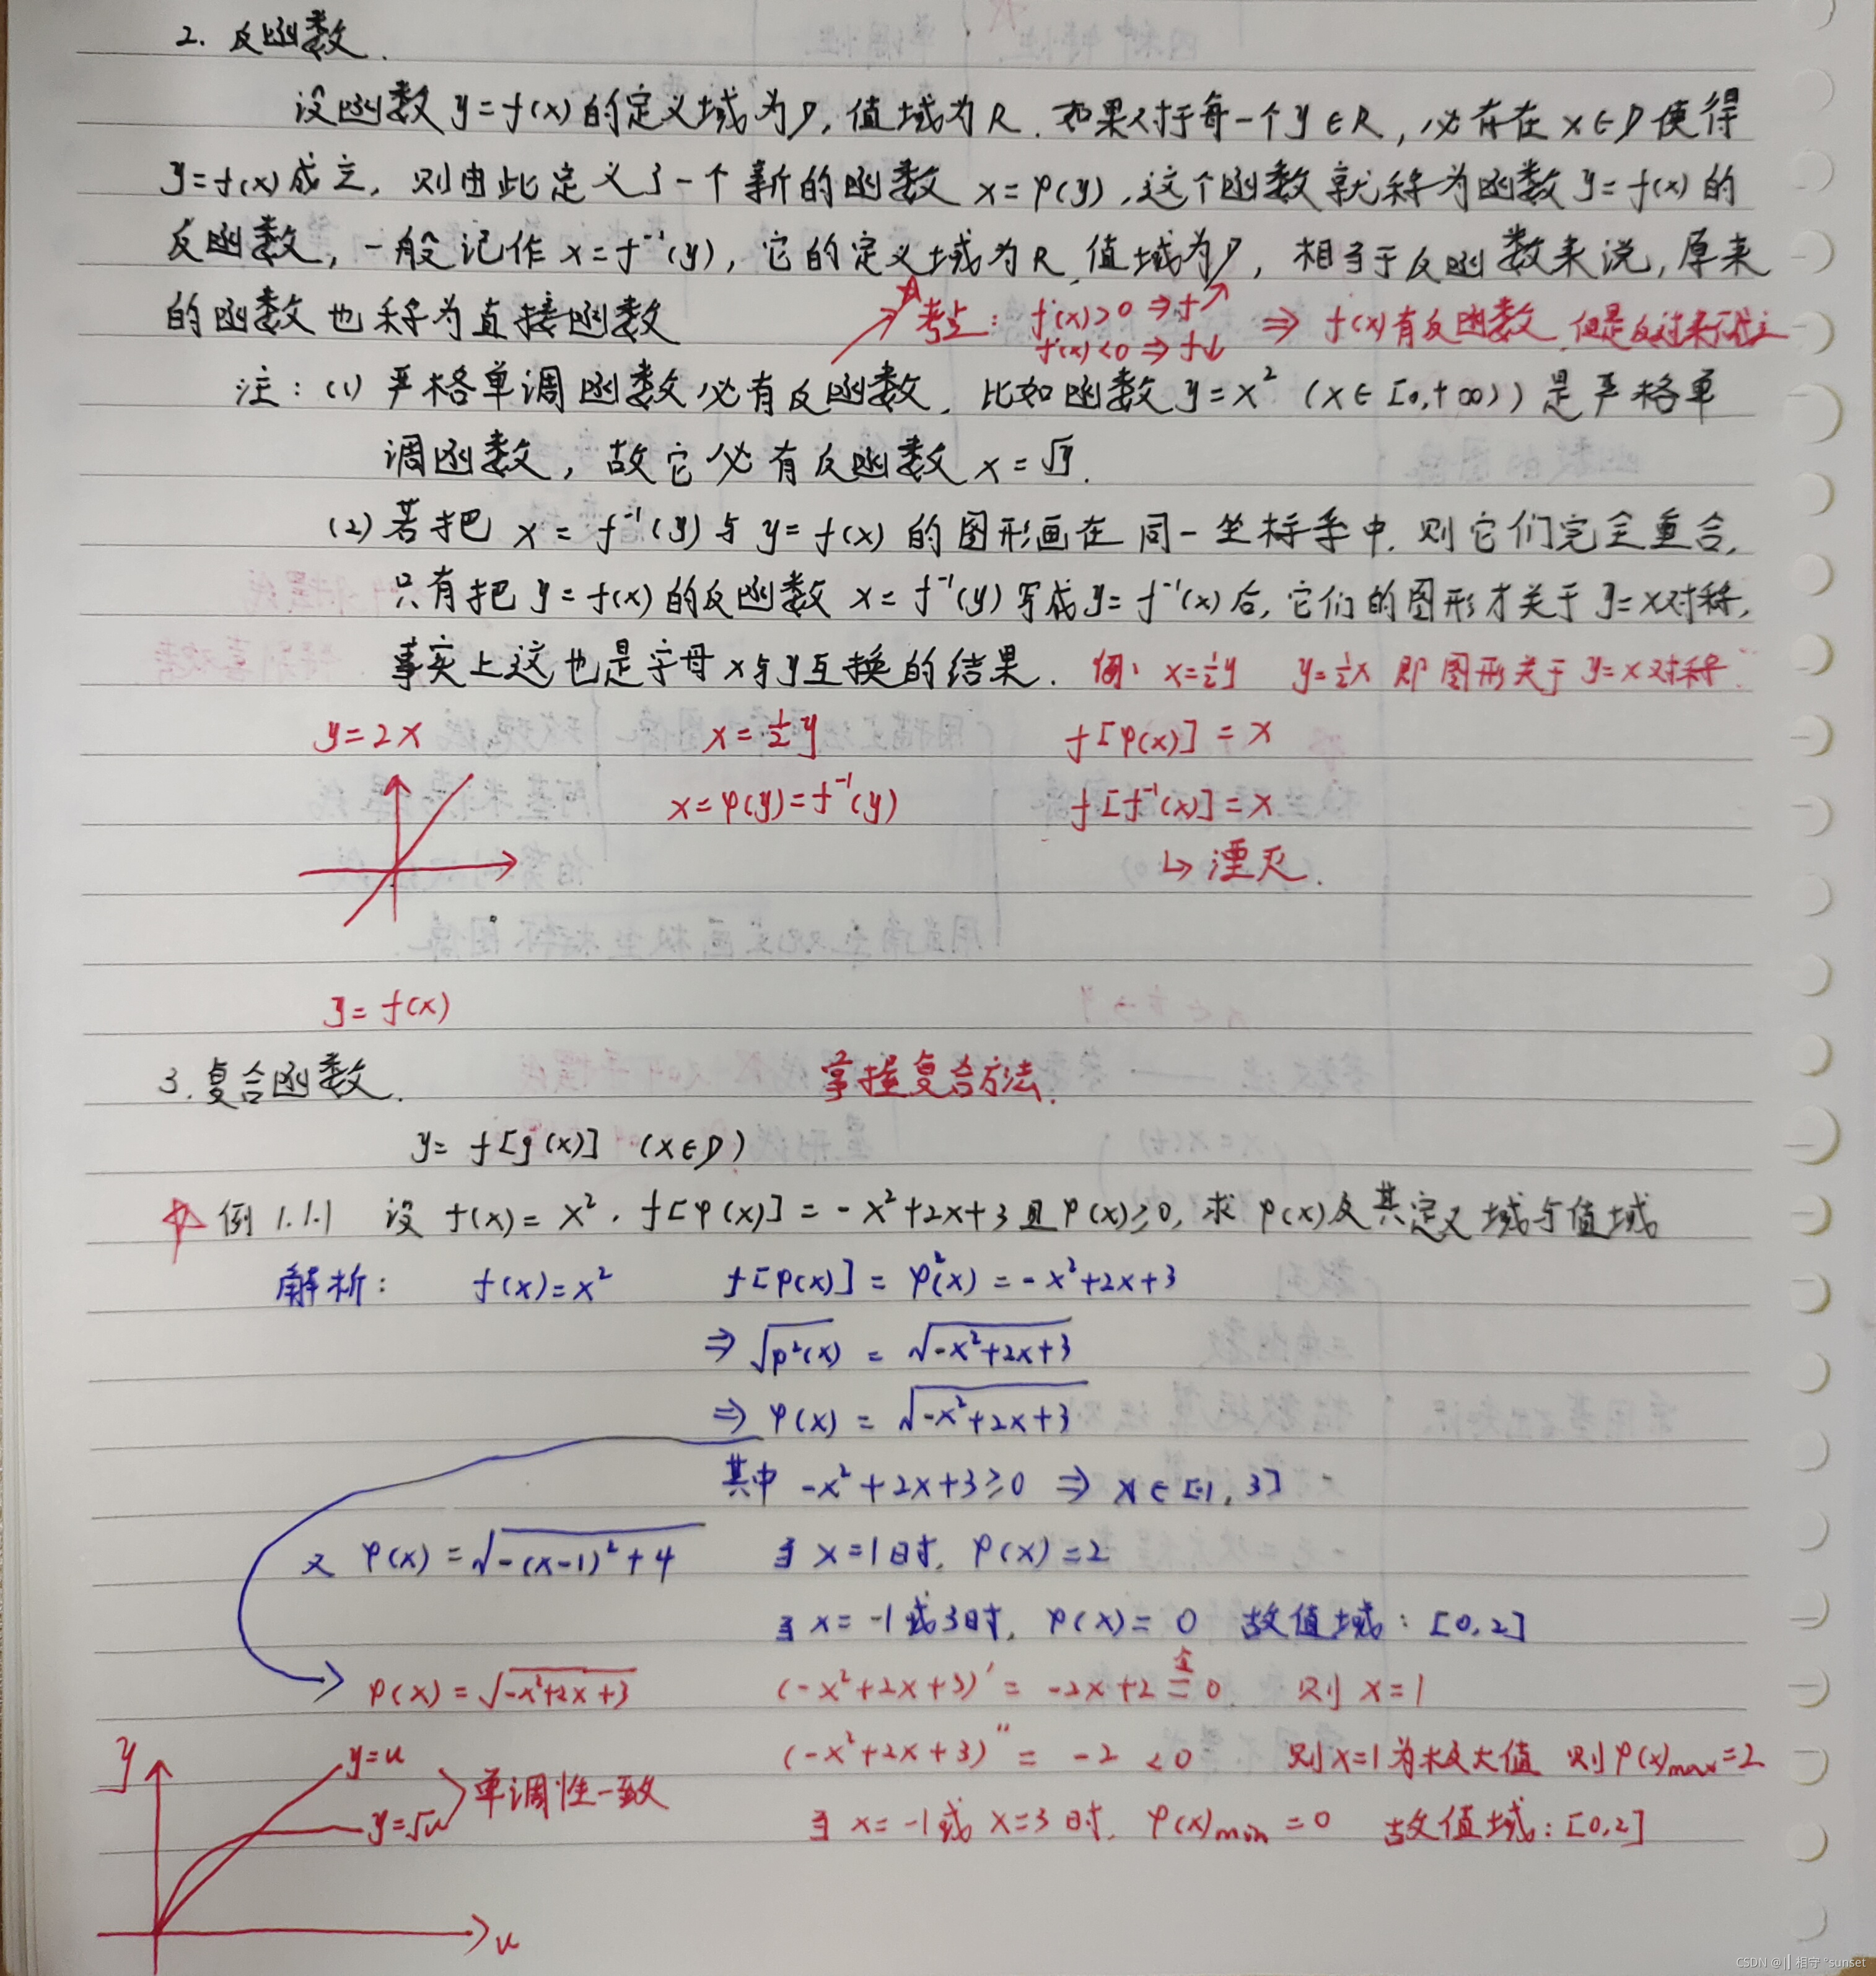 2. 反函数.
设函数 y=f(x) 的定义域为D, 值域为R. 如果对于每一个 y∈R, 必存在 x∈D 使得
y=f(x) 成立, 则由此定义了一个新的函数 x=φ(y), 这个函数就称为函数 y=f(x) 的
反函数, 一般记作 x=f⁻¹(y), 它的定义域为R, 值域为D, 相当于反函数来说, 原来
的函数也称为直接函数
考点: f'(x)>0 ⇒ f↗ ⇒ f(x)有反函数, 但是反过来不成立
f'(x)<0 ⇒ f↓
注: (1) 严格单调函数必有反函数, 比如函数 y=x² (x∈[0,+∞)) 是严格单
调函数, 故它必有反函数 x=√y.
(2) 若把 x=f⁻¹(y) 与 y=f(x) 的图形画在同一坐标系中, 则它们完全重合,
只有把 y=f(x) 的反函数 x=f⁻¹(y) 写成 y=f⁻¹(x) 后, 它们的图形才关于 y=x对称,
事实上这也是字母x与y互换的结果. 例: x=½y y=½x 即图形关于 y=x对称
y=2x x=½y f[φ(x)]=x
x=φ(y)=f⁻¹(y) f[f⁻¹(x)]=x
↳ 湮灭.
y=f(x)
3. 复合函数. 掌握复合方法.
y=f[g(x)] (x∈D)
例 1.1.1 设 f(x)=x², f[φ(x)]=-x²+2x+3 且 φ(x)≥0, 求 φ(x)及其定义域与值域
解析: f(x)=x² f[φ(x)]=φ²(x)=-x²+2x+3
⇒ √φ²(x) = √-x²+2x+3
⇒ φ(x) = √-x²+2x+3
其中 -x²+2x+3≥0 ⇒ x∈[-1,3]
又 φ(x)=√-(x-1)²+4 当 x=1时, φ(x)=2
当 x=-1或3时, φ(x)=0 故值域: [0,2]
φ(x)=√-x²+2x+3 (-x²+2x+3)'=-2x+2 令= 0 则 x=1
(-x²+2x+3)''=-2<0 则x=1为极大值 则φ(x)max=2
当 x=-1或 x=3时, φ(x)min=0 故值域: [0,2]
y
y=u
y=√u
单调性一致
u
CSDN @|| 相守 °sunset